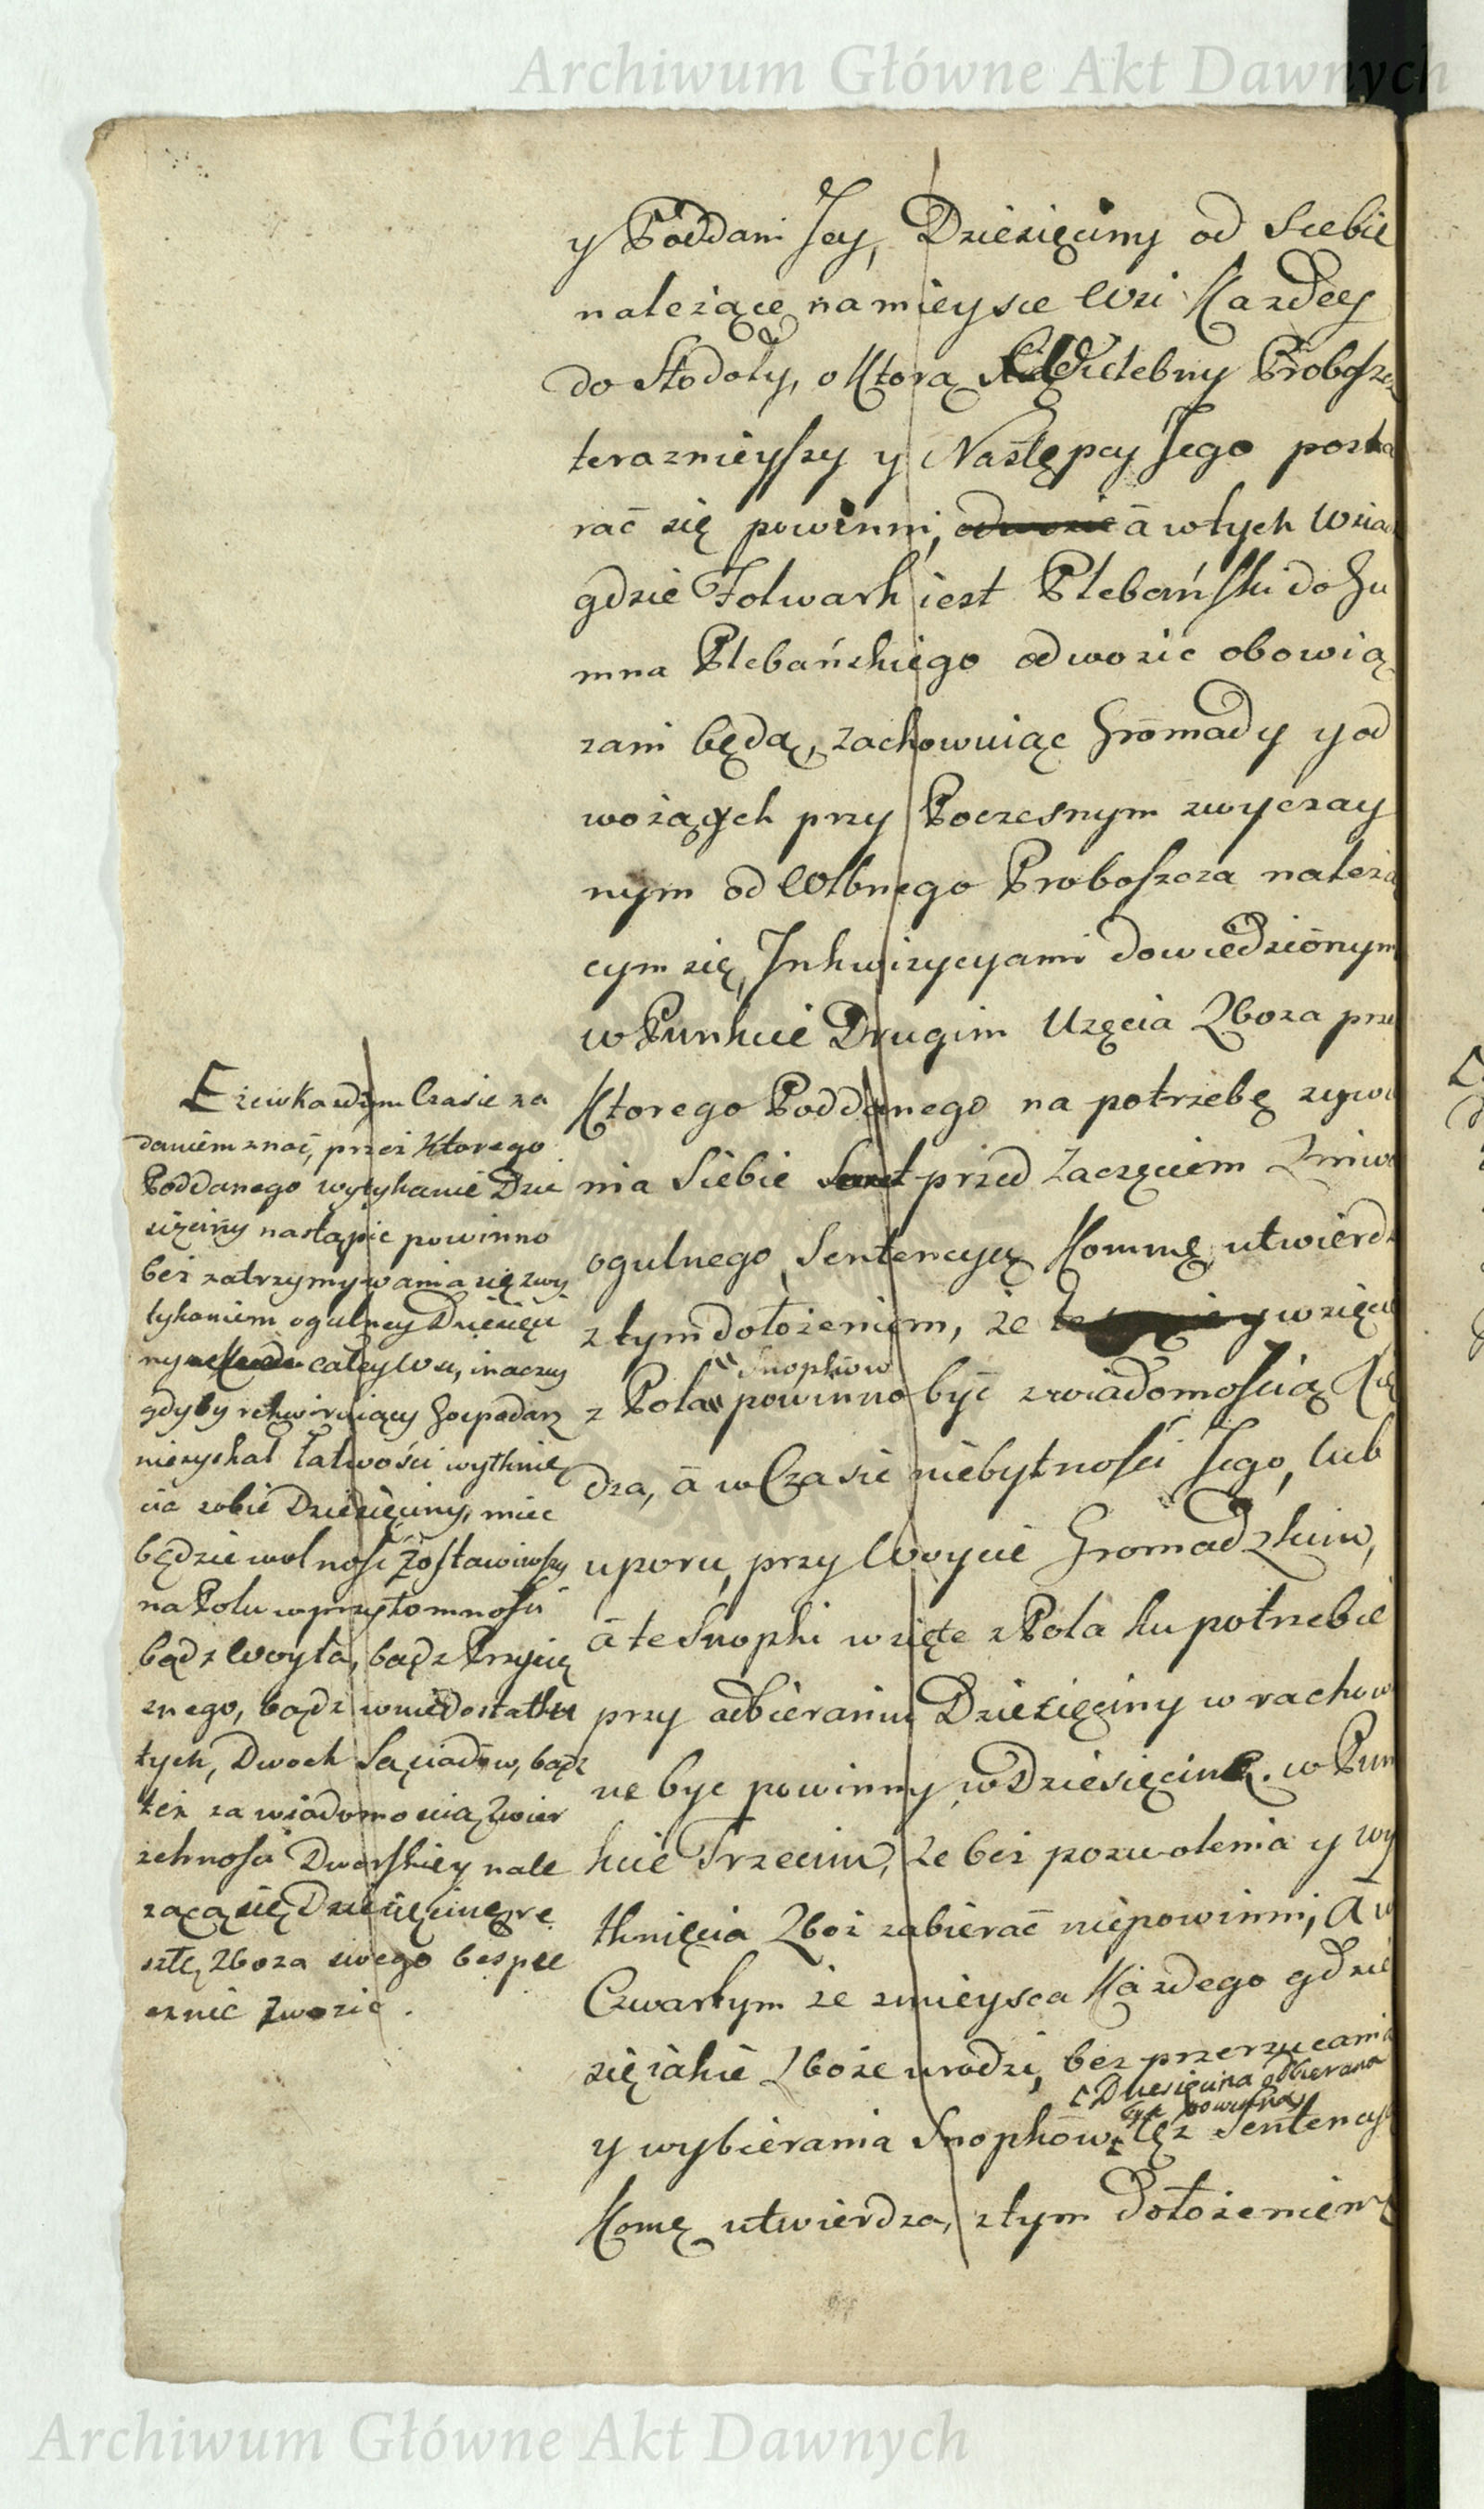 Archiwum Główne Akt Dawnych
y Poddani Jey, Dziesięciny od Siebie
należące na mieysce Wsi Kazdey
do Stodoły, o Ktorą Wielebny Probosz
teraznieyszy y Następcy Jego posta
rać się powinni, odwozic a w tych Wsia
gdzie Folwark iest Plebański do Gu
mna Plebańskiego odwozic obowią
zani będą, zachowuiąc Gromady y od
wozących przy Poczesnym zwyczay
nym od Wlbnego Proboszcza należą
cym się, Inkwizycyami dowiedzionym
w Punkcie Drugim Uzęcia Zboza prze
Ktorego Poddanego na potrzebę zywie
nia Siebie przed zaczęciem Zniwa
ogulnego, Sentencyę Kommę utwierdz
z tym dołożeniem, że wzięcie
Snopków
z Pola powinno być z wiadomością Xię
dza, a w Czasie niebytności Jego, lub
uporu, przy Woycie Gromadzkim,
a te Snopki wzięte z Pola ku potrzebie
przy odbieraniu Dziesięciny w rachow
ne byc powinny w Dziesięcinę. w Pun
kcie Trzecim, że bez pozwolenia y wy
tknięcia Zboż zabierać niepowinni, A w
Czwartym że z mieysca Każdego gdzie
się iakie Zboże urodzi, bez przerzucania
Dziesięcina odbierana
byc powinna
y wybierania Snopków, tęż Sentencyę
Komę utwierdza, z tym Dołożeniem
Eżew Każdym Czasie za
daniem znać, przez Ktorego
Poddanego wytykanie Dzie
sięciny nastąpic powinno
bez zatrzymywania się z wy
tykaniem ogulney Dziesięci
ny całey Wsi, inaczey
gdyby rekwiruiący Gospodarz
niezyskał łatwości wytknię
cia sobie Dziesięciny, miec
będzie wolność zostawiwszy
na Polu w przytomności
bądz Woyta, bądz Przysię
znego, bądz w niedostatku
tych, Dwoch Sąsiadow, bądz
też za wiadomością Zwier
zchności Dworskiey nale
zącą się Dziesięcinę, re
sztę zboza swego bespie
cznie zwozic.
Archiwum Główne Akt Dawnych